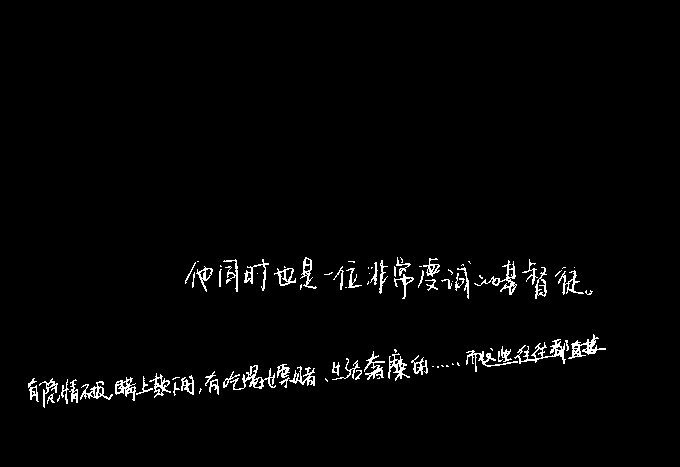 他同时也是一位非常虔诚的基督徒。
有隐情不报,瞒上欺下的,有吃喝嫖赌、生活奢糜的……而这些往往都直接